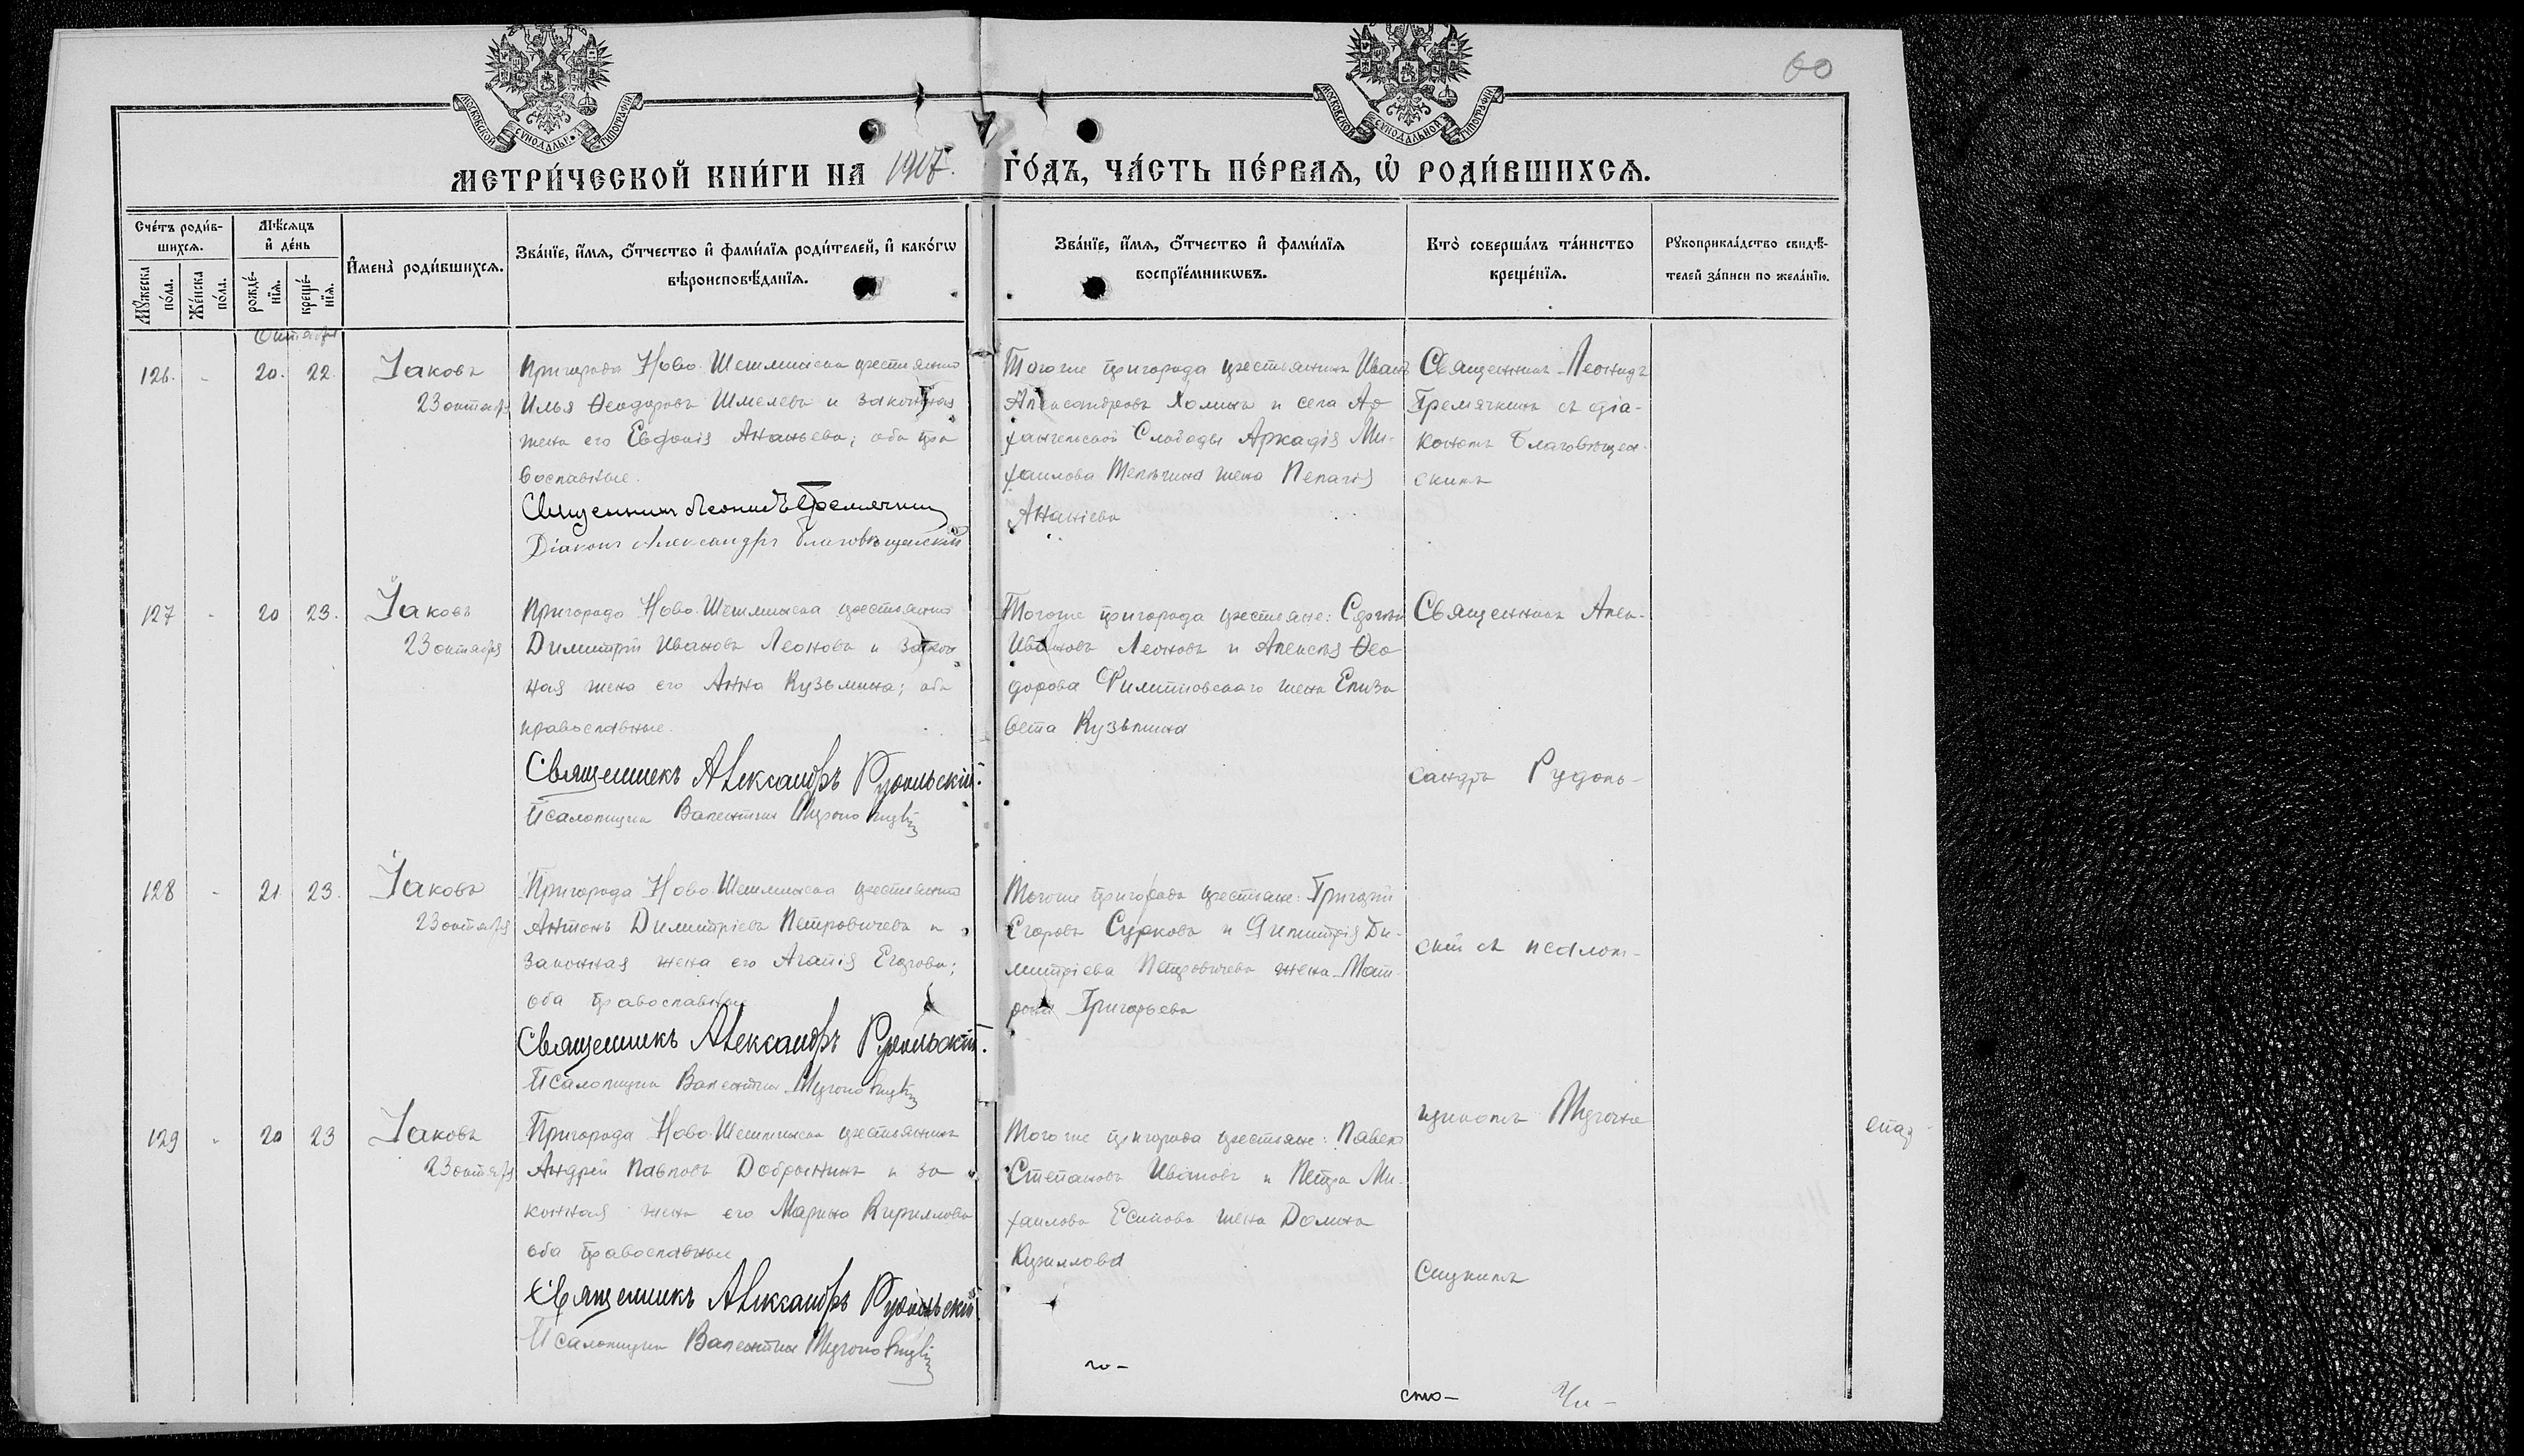 60
МОСКОВСКОЙ СѴНОДАЛЬН. ТИПОГРАФІИ
МОСКОВСКОЙ СѴНОДАЛЬНОЙ ТИПОГРАФІИ
МЕТРИ́ЧЕСКОЙ КНИ́ГИ НА 1917. ГО́ДЪ, ЧА́СТЬ ПЕ́РВАЯ, Ѡ҆ РОДИ́ВШИХСЯ.
Сче́тъ роди́в-
шихся.
Мѣ́сяцъ
и҆ де́нь
Мꙋ́жеска
по́ла.
Же́нска
по́ла.
рожде́-
нїя.
креще́-
нїя.
И҆мена̀ роди́вшихся.
Зва́нїе, и҆́мя, ѻ҆́тчество и҆ фами́лїя роди́телей, и҆ како́гѡ
вѣроисповѣ́данїя.
Зва́нїе, и҆́мя, ѻ҆́тчество и҆ фами́лїя
воспрїе́мникѡвъ.
Кто̀ соверша́лъ та́инство
креще́нїя.
Рꙋкоприкла́дство свидѣ́-
телей за́писи по жела́нїю.
Октября
126. - 20. 22. Іаковъ
23 октября
Пригорода Ново-Шешминска крестьянинъ
Илья Ѳеодоровъ Шмелевъ и законная
жена его Евфимія Ананьева; оба пра
вославные.
Священникъ Леонидъ Гремячкин
Діаконъ Александръ Благовѣщенскій
Тогоже пригорода крестьянинъ Иванъ
Александровъ Холинъ и села Ар
хангельской Слободы Аркадія Ми-
хаилова жена Пелагія
Ананіева
Священникъ Леонидъ
Гремячкинъ съ діа-
кономъ Благовѣщен-
скимъ
127 - 20 23. Іаковъ
23 октября
Пригорода Ново-Шешминска крестьянинъ
Димитрій Ивановъ Леоновъ и закон
ная жена его Анна Кузьмина; оба
православные.
Священникъ Александръ Рудольскій.
Псаломщикъ Валентинъ
Тогоже пригорода крестьяне: Сергѣй
Ивановъ Леоновъ и Алексѣя Ѳео
дорова Филипповскаго жена Елиза
вета Кузьмина
Священникъ Алек-
сандръ Рудоль-
128 - 21 23. Іаковъ
23 октября
Пригорода Ново-Шешминска крестьянинъ
Антонъ Димитріевъ Петровичевъ и
законная жена его Агапія Егорова;
оба православные
Священникъ Александръ Рудольскій.
Псаломщикъ Валентинъ
Тогоже пригорода крестьяне: Григорій
Егоровъ Сурковъ и Димитрія Ди-
митріева Петровичева жена Мат-
рона Григорьева
скій съ псалом-
щикомъ
129 - 20 23 Іаковъ
23 октября
Пригорода Ново-Шешминска крестьянинъ
Андрей Павловъ Добрынинъ и за
конная жена его Марина Кириллова
оба православные
Священникъ Александръ Рудольскій
Псаломщикъ Валентинъ
Тогоже пригорода крестьяне: Павелъ
Степановъ Ивановъ и Петра Ми-
хаилова Есипова жена Домна
Кириллова
го-
сто-
Чи-